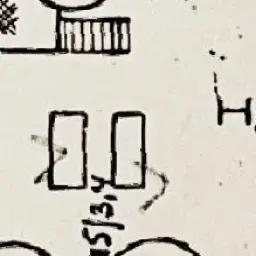 H
15/3,4